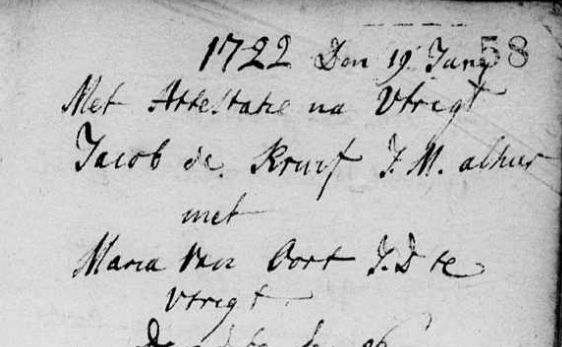 1722 Den 19 Juny 58
Met Attestatie na Vtregt
Jacob de Kruif J. M. alhier
met
Maria Van Oort J. D te
Vtregt